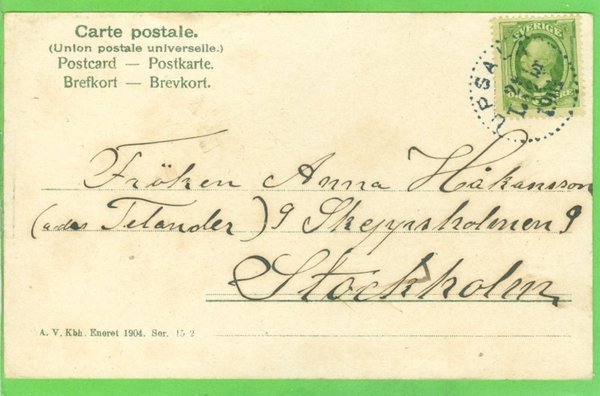 Carte postale.
(Union postale universelle.)
Postcard — Postkarte.
Brefkort — Brevkort.
SVERIGE
UPSALA
Fröken Anna Håkansson
(adr Telander) 9 Skeppsholmen 9
Stockholm
A. V. Kbh. Eneret 1904. Ser. 15 2